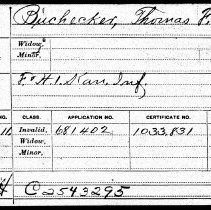 Buchecker, Thomas F.
Widow,
Minor,
F. & I. Kan. Inf.
NO. CLASS. APPLICATION NO. CERTIFICATE NO.
Invalid, 681402 1033,831
Widow,
Minor,
C2543295